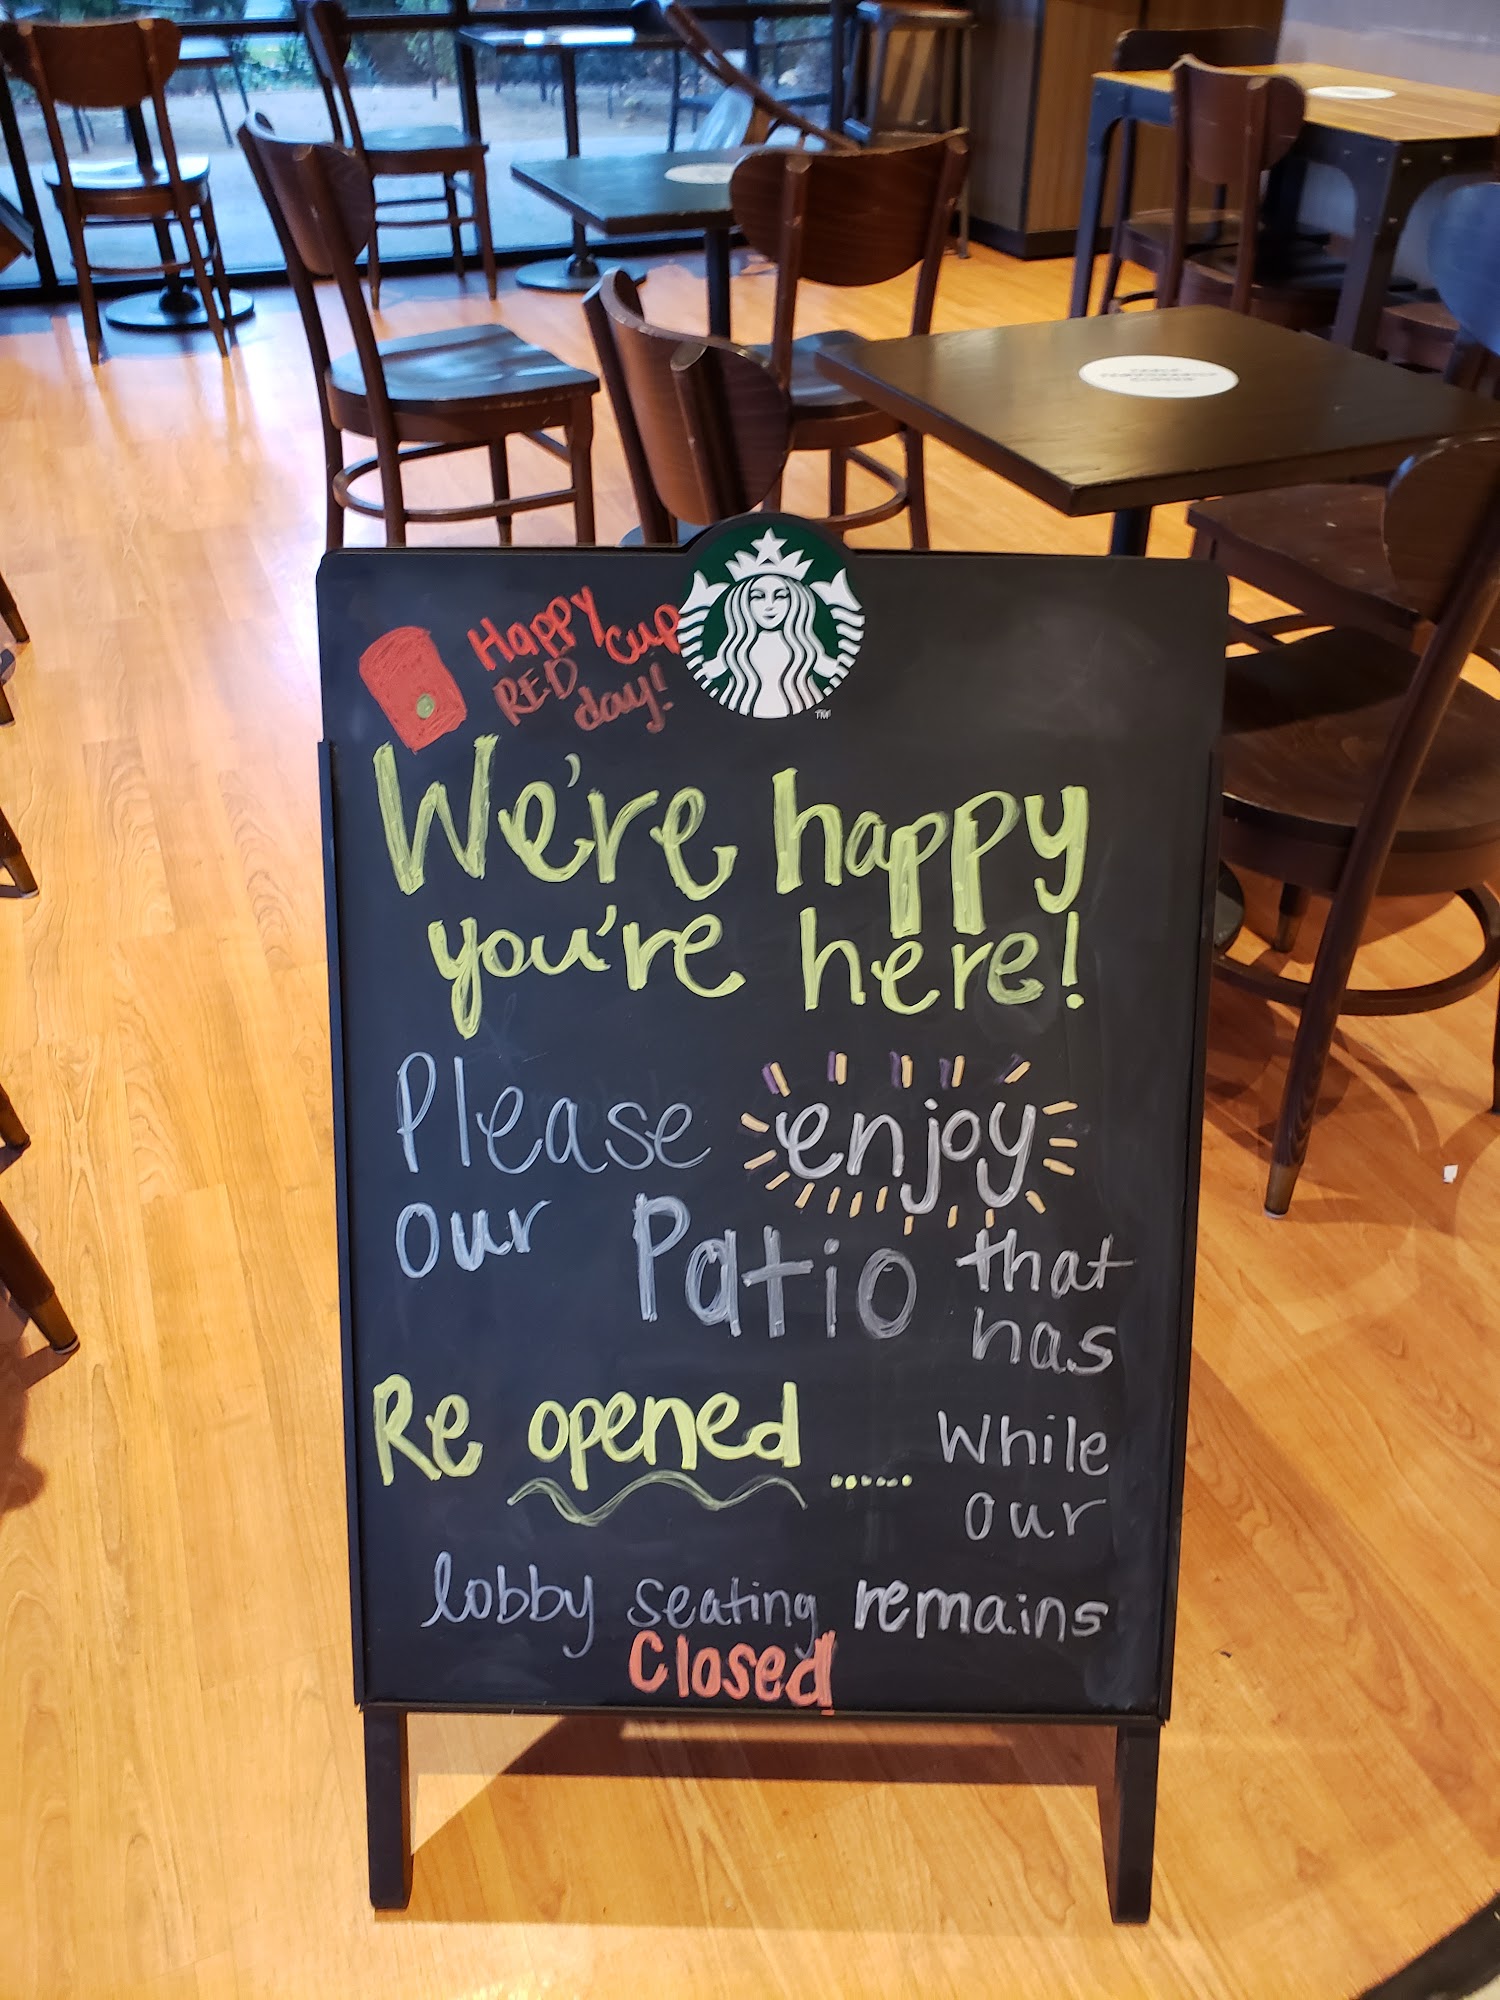 Happy Cup
RED day!
TM
We're happy
you're here!
Please enjoy
our Patio that
has
Re opened ...... While
our
lobby seating remains
Closed